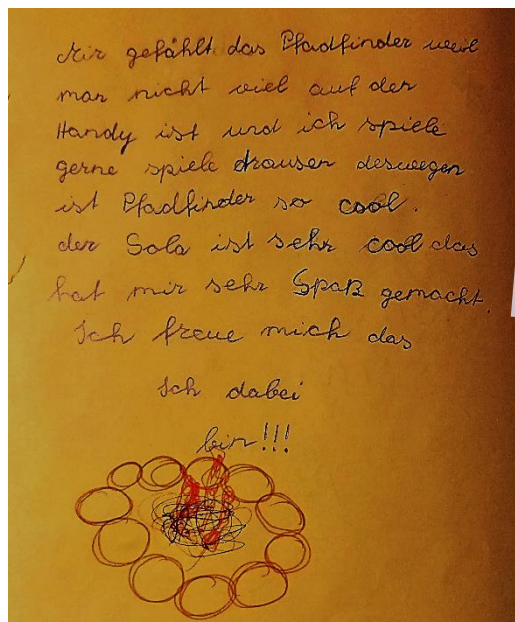 Mir gefählt das Pfadfinder weil
man nicht viel auf der
Handy ist und ich spiele
gerne spiele drausen deswegen
ist Pfadfinder so cool.
der Sola ist sehr cool das
hat mir sehr Spaß gemacht.
Ich freue mich das
Ich dabei
bin!!!